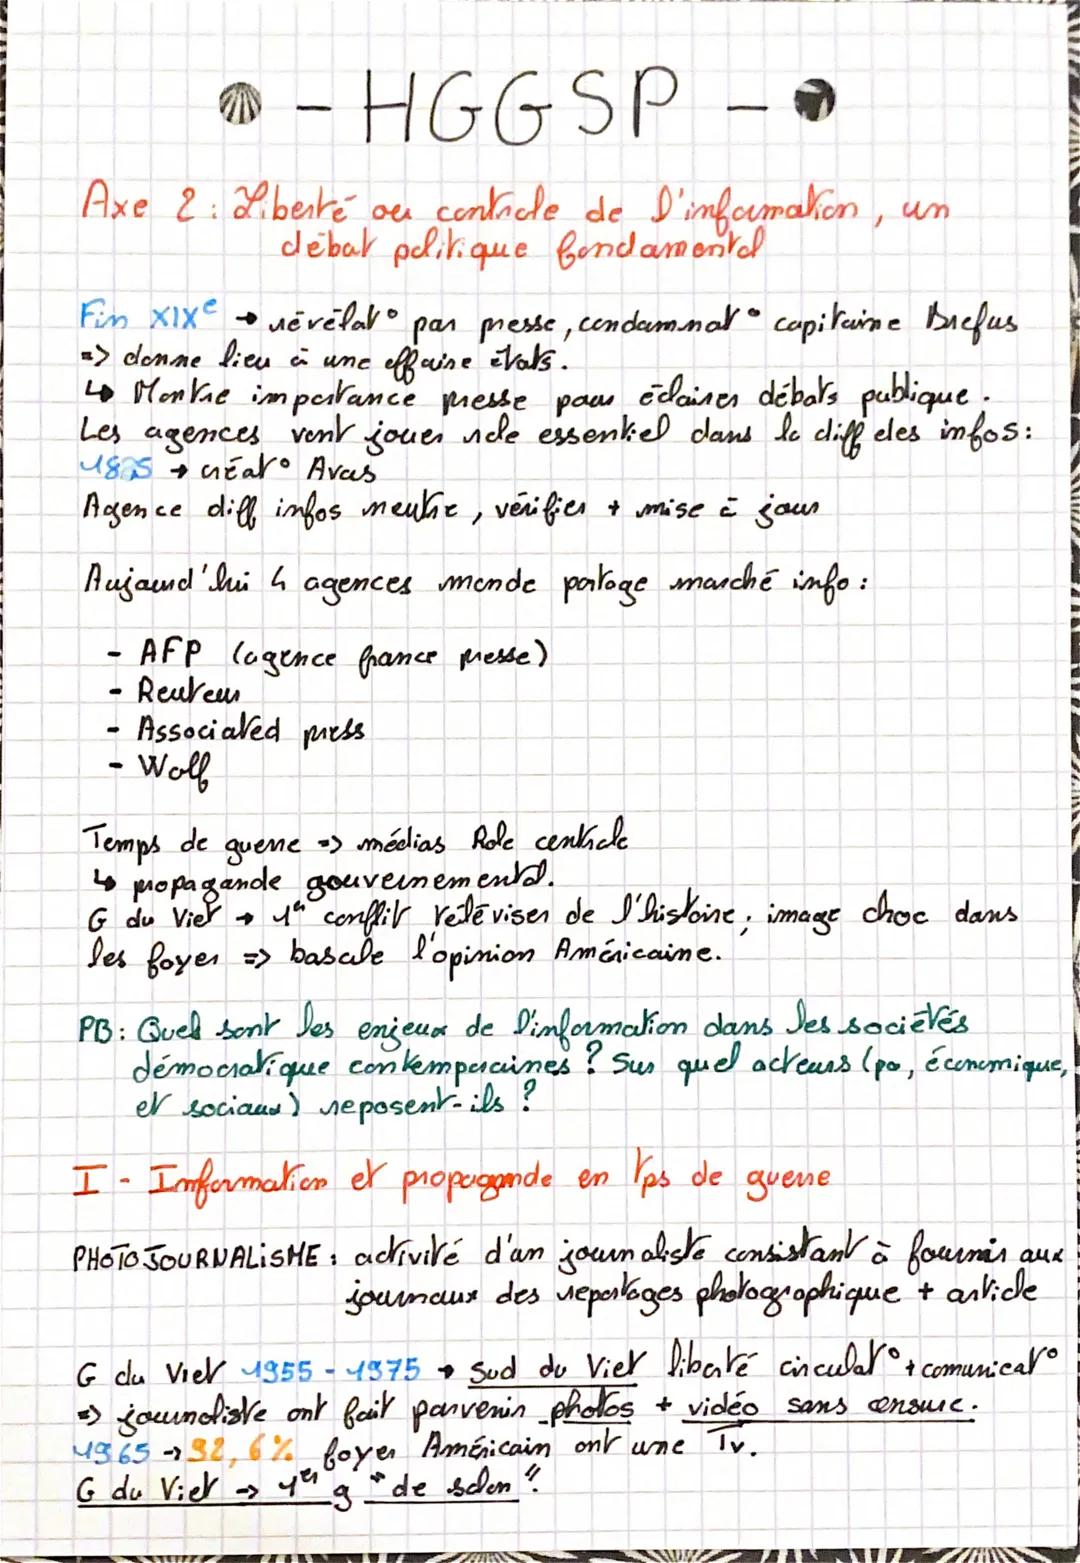 - HGGSP -
Axe 2 : Liberté ou contrôle de l'information, un
débat politique fondamental
Fin XIXe → révélat° par presse, condamnat° capitaine Drefus
=> donne lieu à une affaire états.
↳ Montre importance presse pour éclairer débats publique.
Les agences vont jouer role essentiel dans la diff des infos :
→ créat° Avas
Agence diff infos neutre, vérifier + mise à jour
Aujourd'hui 4 agences monde partage marché info :
- AFP (agence france presse)
- Reuteur
- Associated press
- Wolf
Temps de guerre => médias Role centrale
↳ propagande gouvernemental.
G du Viet → 1er conflit téléviser de l'histoire ; image choc dans
les foyer => bascule l'opinion Américaine.
PB : Quel sont les enjeux de l'information dans les sociétés
démocratique contemporaines ? Sur quel acteurs (po, économique,
et sociaux) reposent-ils ?
I - Information et propagande en tps de guerre
PHOTOJOURNALISME : activité d'un journaliste consistant à fournir aux
journaux des reportages photographique + article
G du Viet 1955 - 1975 → Sud du Viet liberté circulat° + comunicat°
=> journaliste ont fait parvenir photos + vidéo sans censure.
1965 → 92,6% foyer Américain ont une Tv.
G du Viet → 1er g "de salon".